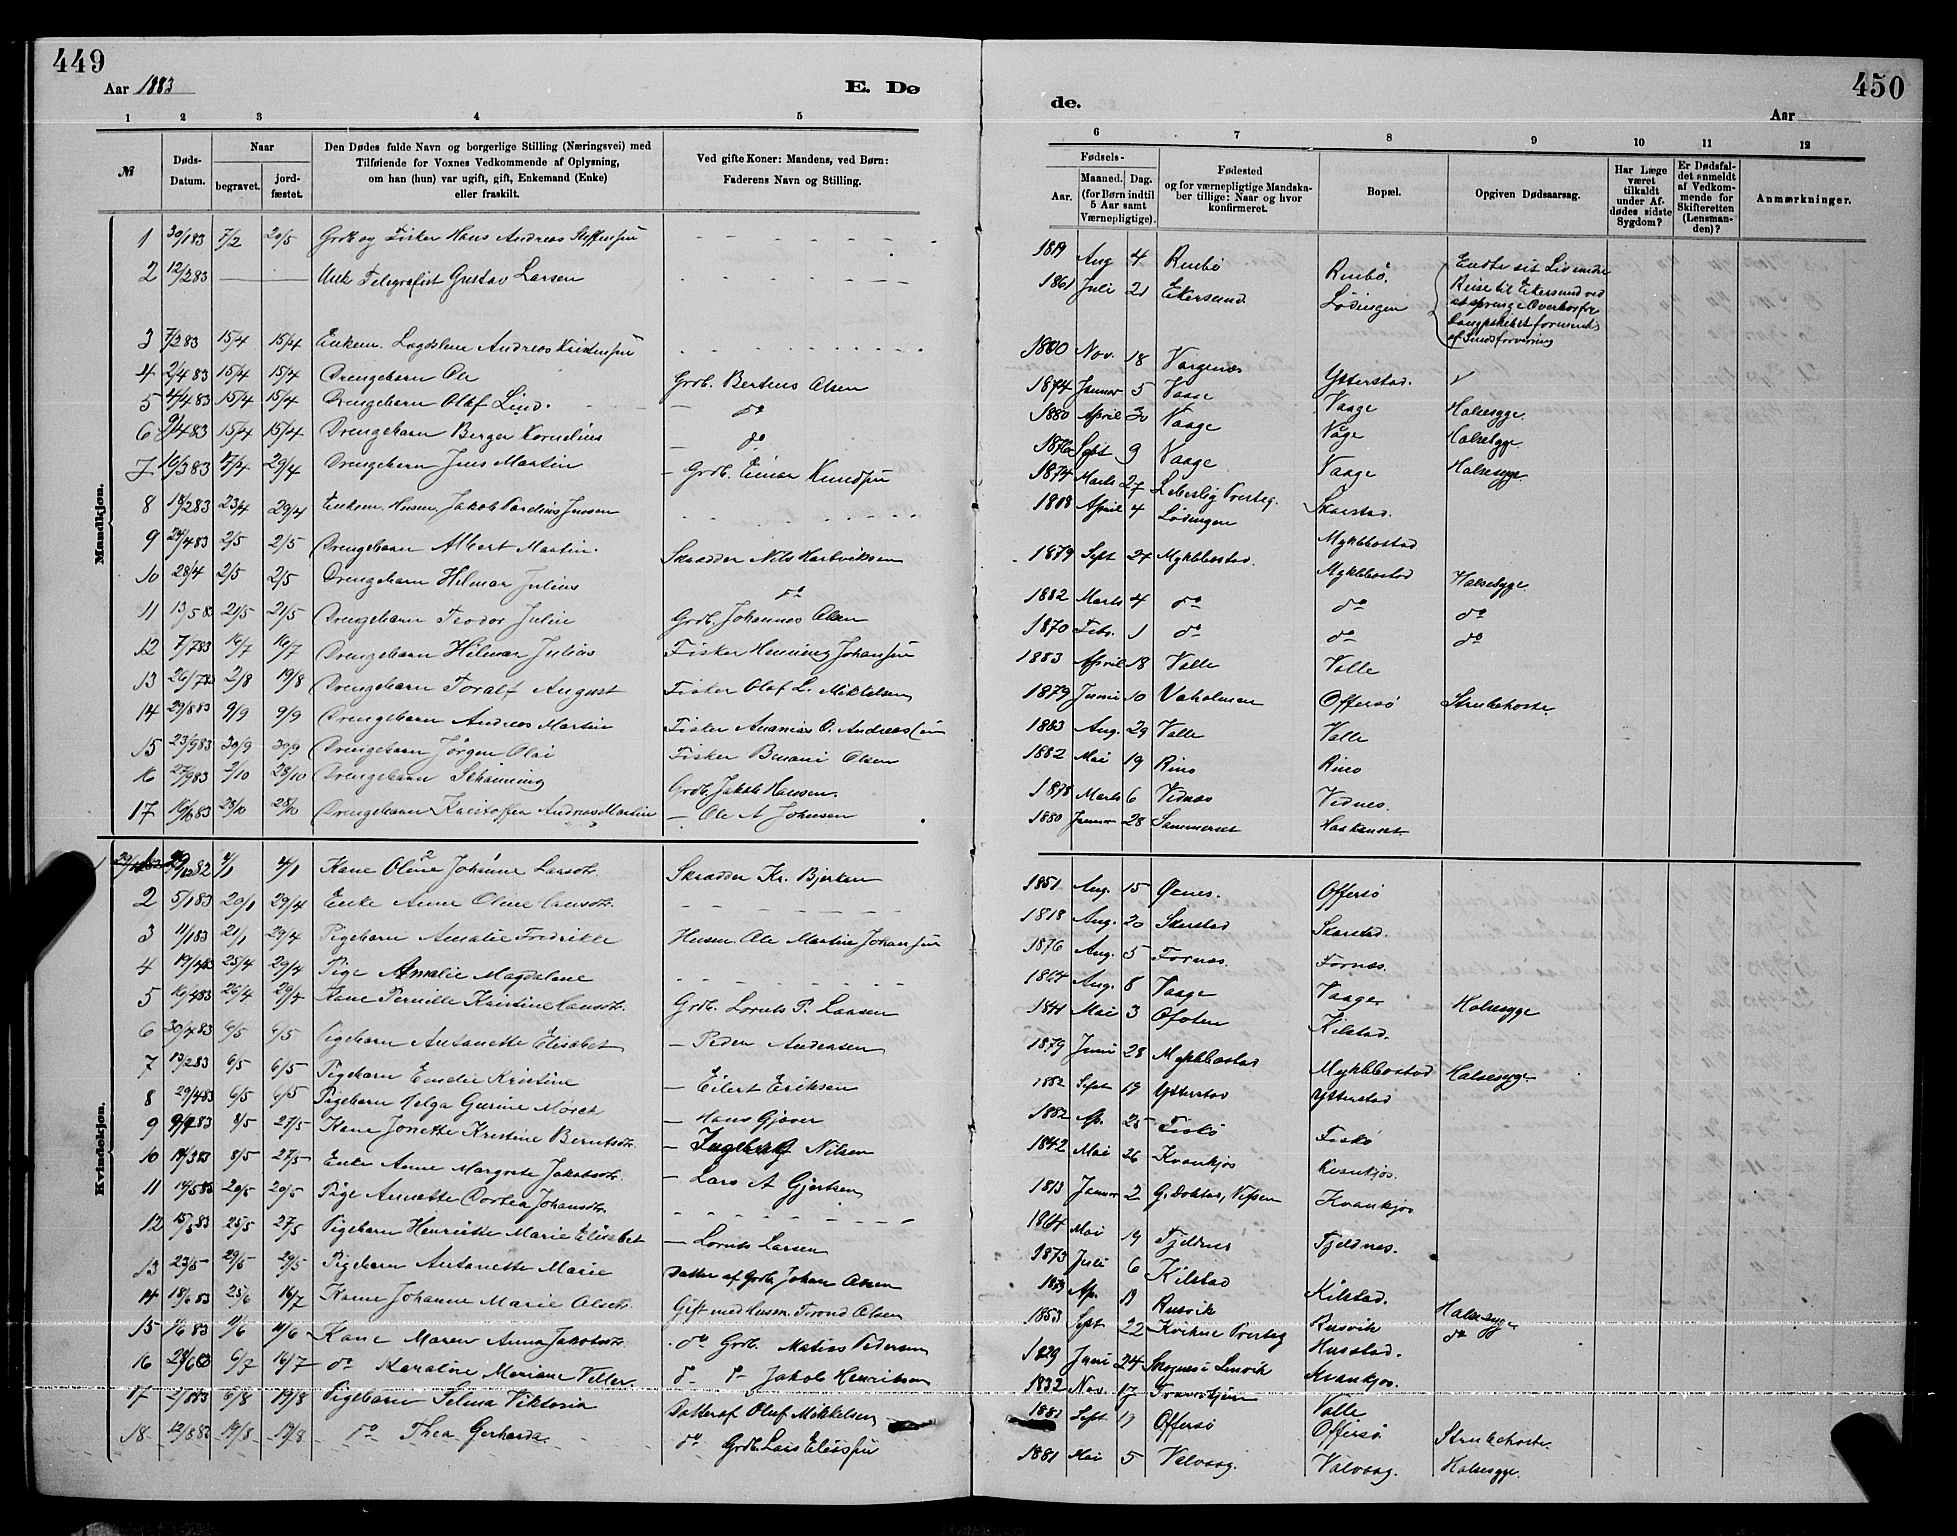 449
Aar 1883
E. Dø
1 2 3 4 5
№
Døds-Datum.
Naar
begravet.
jord-fæstet.
Den Dødes fulde Navn og borgerlige Stilling (Næringsvei) med
Tilføiende for Voxnes Vedkommende af Oplysning,
om han (hun) var ugift, gift, Enkemand (Enke)
eller fraskilt.
Ved gifte Koner: Mandens, ved Børn:
Faderens Navn og Stilling.
Mandkjøn.
1 30/1 83 7/2 20/5 Grdb og Fisker Hans Andreas Steffensen
2 12/2 83 Unk Telegrafist Gustav Larsen
3 7/2 83 15/4 15/4 Enkem. Andreas
4 2/4 83 15/4 15/4 Drengebarn Ole Grdb. Bertens Olsen
5 4/4 83 15/4 15/4 Drengebarn Olaf Lind. — do
6 9/4 83 15/4 15/4 Drengebarn Berger Kornelius — do
7 16/3 83 29/4 Drengebarn Jens Martin — Grdb. Einar Knudsen
8 18/2 83 23/4 29/4 Enkem. Husm. Jakob Pardelius Jensen
9 24/4 83 2/5 2/5 Drengebarn Albert Martin. Skrædder Nils Hartviksen
10 28/4 2/5 2/5 Drengebarn Hilmar Julius do
11 13/5 83 21/5 21/5 Drengebarn Teodor Julin Grdb. Johannes Olsen
12 7/7 83 16/7 16/7 Drengebarn Hilmar Julius Fisker Henning Johansen
13 26/7 83 2/8 19/8 Drengebarn Toralf August Fisker Olaf L. Mikkelsen
14 29/8 83 9/9 9/9 Drengebarn Andreas Martin Fisker Ananias O. Andreassen
15 23/9 83 30/9 30/9 Drengebarn Jørgen Olai Fisker Benoni Olsen
16 27/9 83 28/10 Drengebarn Schønning Grdb. Jakob Hansen.
17 16/10 83 28/10 28/10 Drengebarn Kristoffer Andreas Martin — Ole A Johnsen
Kvindekjøn.
1 29/12 82 4/1 4/1 Kone Oline Johanne Larsdtr. Skrædder Kr. Bjerken
2 5/1 83 20/1 29/4 Enke Anne Oline Hansdtr.
3 11/1 83 21/1 29/4 Pigebarn Amalie Fredrikke Husm. Ole Martin Johansen
4 19/4 83 25/4 29/4 Pige Amalie Magdalene
5 16/4 83 26/4 29/4 Kone Pernille Kristine Hansdtr. Grdb. Lornts P. Larsen
6 30/4 83 6/5 6/5 Pigebarn Antonette Elisabet — Peder Andersen
7 13/2 83 6/5 6/5 Pigebarn Emelie Kristine — Eilert Eriksen
8 29/4 83 6/5 6/5 Pigebarn Helga Gurine Mørch — Hans Gjøver
9 83 8/5 27/5 Kone Jonette Kristine Berntsdtr. — Ingeberg Nilsen
10 83 8/5 27/5 Enke Anne Margrete Jakobsdtr. — Lars A Gjertsen
11 14/5 83 20/5 20/5 Pige Annette Dortea Johansdtr.
12 15/5 83 25/5 27/5 Pigebarn Henriette Marie Elisabet — Lornts Larsen
13 23/5 29/5 29/5 Pigebarn Antonette Marie Datter af Grdb. Johan Olsen
14 18/6 83 25/6 16/7 Kone Johanne Marie Olsdtr. Gift med Husm. Trond Olsen
15 1/6 83 11/6 11/6 Kone Maren Anna Jakobsdtr. do Grdb. Matias Pedersen
16 6/7 16/7 do Karoline Mariane Veller. do do Jakob Henriksen
17 2/8 83 6/8 19/8 Pigebarn Selma Viktoria Datter af Oluf Mikkelsen
18 12/8 83 19/8 19/8 do Thea Gerharda do Grdb. Lars Eliassen
450
de.
Aar
6 7 8 9 10 11 12
Fødsels-
Aar.
Maaned. Dag.
(for Børn indtil
5 Aar samt
Værnepligtige).
Fødested
og for værnepligtige Mandska-
ber tillige: Naar og hvor
konfirmeret.
Bopæl.
Opgiven Dødsaarsag.
Har Læge
været
tilkaldt
under Af-
dødes sidste
Sygdom?
Er Dødsfal-
det anmeldt
af Vedkom-
mende for
Skifteretten
(Lensman-
den)?
Anmærkninger.
1819 Aug 4 Rinbø Rinbø.
1861 Juli 21 Ekersund Lødingen Endte sit Liv under
Reise til Ekersund ved
at springe Overbord fra
Dampskibet formentlig
af Sindsforvirring
1800 Nov. 18 Vargenæs Ytterstad.
1874 Januar 5 Vaage Vaage Halsesyge.
1880 April 30 Vaage Våge Halsesyge
1876 Sept 9 Vaage Vaage Halsesyge
1874 Marts 27 Presteg. Skarstad.
1808 April 4 Lødingen Myklebostad
1879 Sept 24 Myklebostad. Myklebostad Halsesyge
1882 Marts 4 do do do
1870 Febr. 1 do do do
1883 April 18 Valle Valle
1879 Juni 10 Vaholmen Offersø Strubehoste.
1883 Aug. 29 Valle Valle
1882 Mai 19 Rinø Rinø
1878 Marts 6 Vidnæs Vidnes.
1880 Januar 28 Sommerset
1851 Aug. 15 Offersø
1818 Aug. 20 Skarstad Skarstad.
1876 Aug. 5 Fornæs. Fornæs.
1864 Aug. 8 Vaage Vaage Halsesyge
1841 Mai 3 Ofoten Kilstad.
1879 Juni 28 Myklebostad Myklebostad Halsesyge
1882 Sept 19 Ytterstad Ytterstad
1882 Ap. 25 Fiskø Fiskø
1842 Mai 26 Kvankjos Kvankjos.
1813 Januar 2 Kvankjos
1864 Mai 19 Tjeldnes Tjeldnes.
1873 Juli 6 Kilstad Kilstad. Halsesyge
Ap. 19 Rusvik Rusvik do
1853 Sept 22 Presteg Husstad.
1829 Juni 24 i Lenvik Kvankjos.
1832 Nov. 17 Valle
1882 Sept 19 Offersø Offersø. Strubehoste.
1881 Mai 5 Valvaag. Valvaag. Halsesyge.